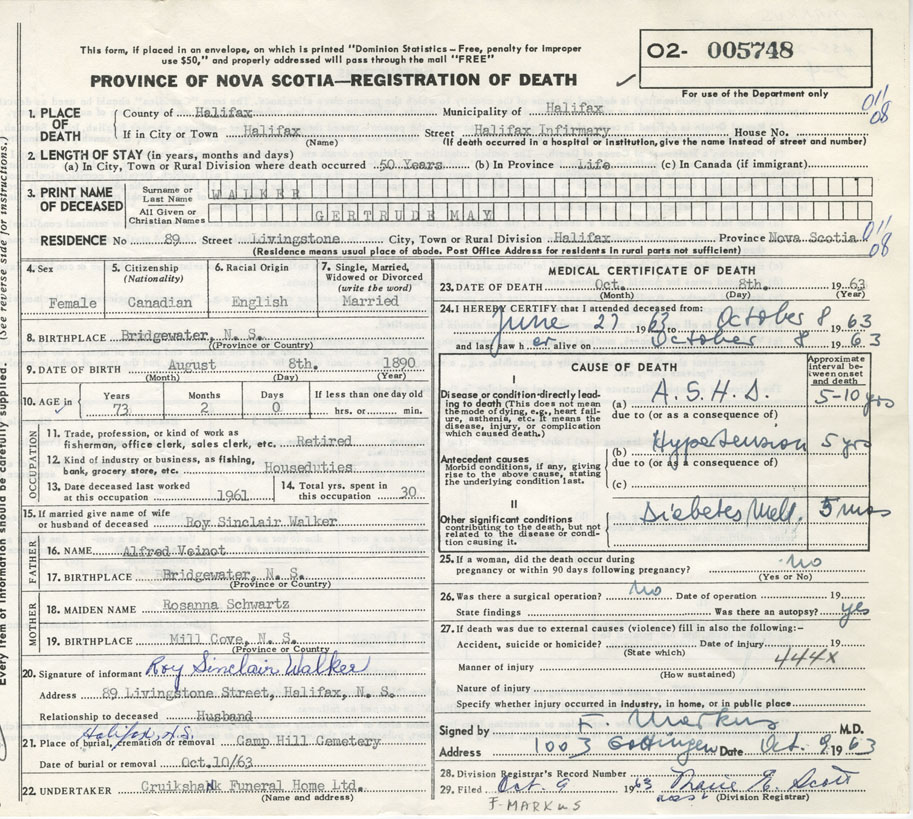 This form, if placed in an envelope, on which is printed "Dominion Statistics – Free, penalty for improper
use $50," and properly addressed will pass through the mail "FREE"
PROVINCE OF NOVA SCOTIA—REGISTRATION OF DEATH
02- 005748
For use of the Department only
011
08
1. PLACE OF DEATH
County of Halifax Municipality of Halifax
If in City or Town Halifax Street Halifax Infirmary House No.
(Name) (If death occurred in a hospital or institution, give the name instead of street and number)
2. LENGTH OF STAY (in years, months and days)
(a) In City, Town or Rural Division where death occurred 50 Years (b) In Province Life (c) In Canada (if immigrant)
3. PRINT NAME OF DECEASED
Surname or Last Name WALKER
All Given or Christian Names GERTRUDE MAY
RESIDENCE No 89 Street Livingstone City, Town or Rural Division Halifax Province Nova Scotia
(Residence means usual place of abode. Post Office Address for residents in rural parts not sufficient)
011
08
4. Sex
Female
5. Citizenship
(Nationality)
Canadian
6. Racial Origin
English
7. Single, Married,
Widowed or Divorced
(write the word)
Married
8. BIRTHPLACE Bridgewater, N. S.
(Province or Country)
9. DATE OF BIRTH August 8th. 1890
(Month) (Day) (Year)
10. AGE in
Years Months Days If less than one day old
73 2 0 hrs. or min.
OCCUPATION
11. Trade, profession, or kind of work as
fisherman, office clerk, sales clerk, etc. Retired
12. Kind of industry or business, as fishing,
bank, grocery store, etc. Houseduties
13. Date deceased last worked
at this occupation 1961
14. Total yrs. spent in
this occupation 30
15. If married give name of wife
or husband of deceased Roy Sinclair Walker
FATHER
16. NAME Alfred Veinot
17. BIRTHPLACE Bridgewater, N. S.
(Province or Country)
MOTHER
18. MAIDEN NAME Rosanna Schwartz
19. BIRTHPLACE Mill Cove, N. S.
(Province or Country
20. Signature of informant Roy Sinclair Walker
Address 89 Livingstone Street, Halifax, N. S.
Relationship to deceased Husband
Halifax, N.S.
21. Place of burial, cremation or removal Camp Hill Cemetery
Date of burial or removal Oct.10/63
22. UNDERTAKER Cruikshank Funeral Home Ltd.
(Name and address)
MEDICAL CERTIFICATE OF DEATH
23. DATE OF DEATH Oct. 8th. 1963
(Month) (Day) (Year)
24. I HEREBY CERTIFY that I attended deceased from:
June 27 1963 to October 8 1963
and last saw her alive on October 8 1963
CAUSE OF DEATH
Approximate
interval be-
tween onset
and death
I
Disease or condition directly lead-
ing to death (This does not mean
the mode of dying, e.g., heart fail-
ure, asthenia, etc. It means the
disease, injury, or complication
which caused death.)
(a) A.S.H.D. 5-10 yrs
due to (or as a consequence of)
Antecedent causes
Morbid conditions, if any, giving
rise to the above cause, stating
the underlying condition last.
(b) Hypertension 5 yrs
due to (or as a consequence of)
(c)
II
Other significant conditions
contributing to the death, but not
related to the disease or condi-
tion causing it.
Diabetes Mell. 5 mos
25. If a woman, did the death occur during
pregnancy or within 90 days following pregnancy? no
(Yes or No)
26. Was there a surgical operation? no Date of operation 19
State findings Was there an autopsy? yes
27. If death was due to external causes (violence) fill in also the following:-
Accident, suicide or homicide? Date of injury 19
(State which)
444X
Manner of injury
(How sustained)
Nature of injury
Specify whether injury occurred in industry, in home, or in public place
Signed by F. Markus M.D.
Address 1003 Gottingen Date Oct. 9 1963
28. Division Registrar's Record Number
29. Filed Oct. 9 1963 Scott
asst (Division Registrar)
F-MARKUS
Every item of information should be carefully supplied. (See reverse side for instructions.)